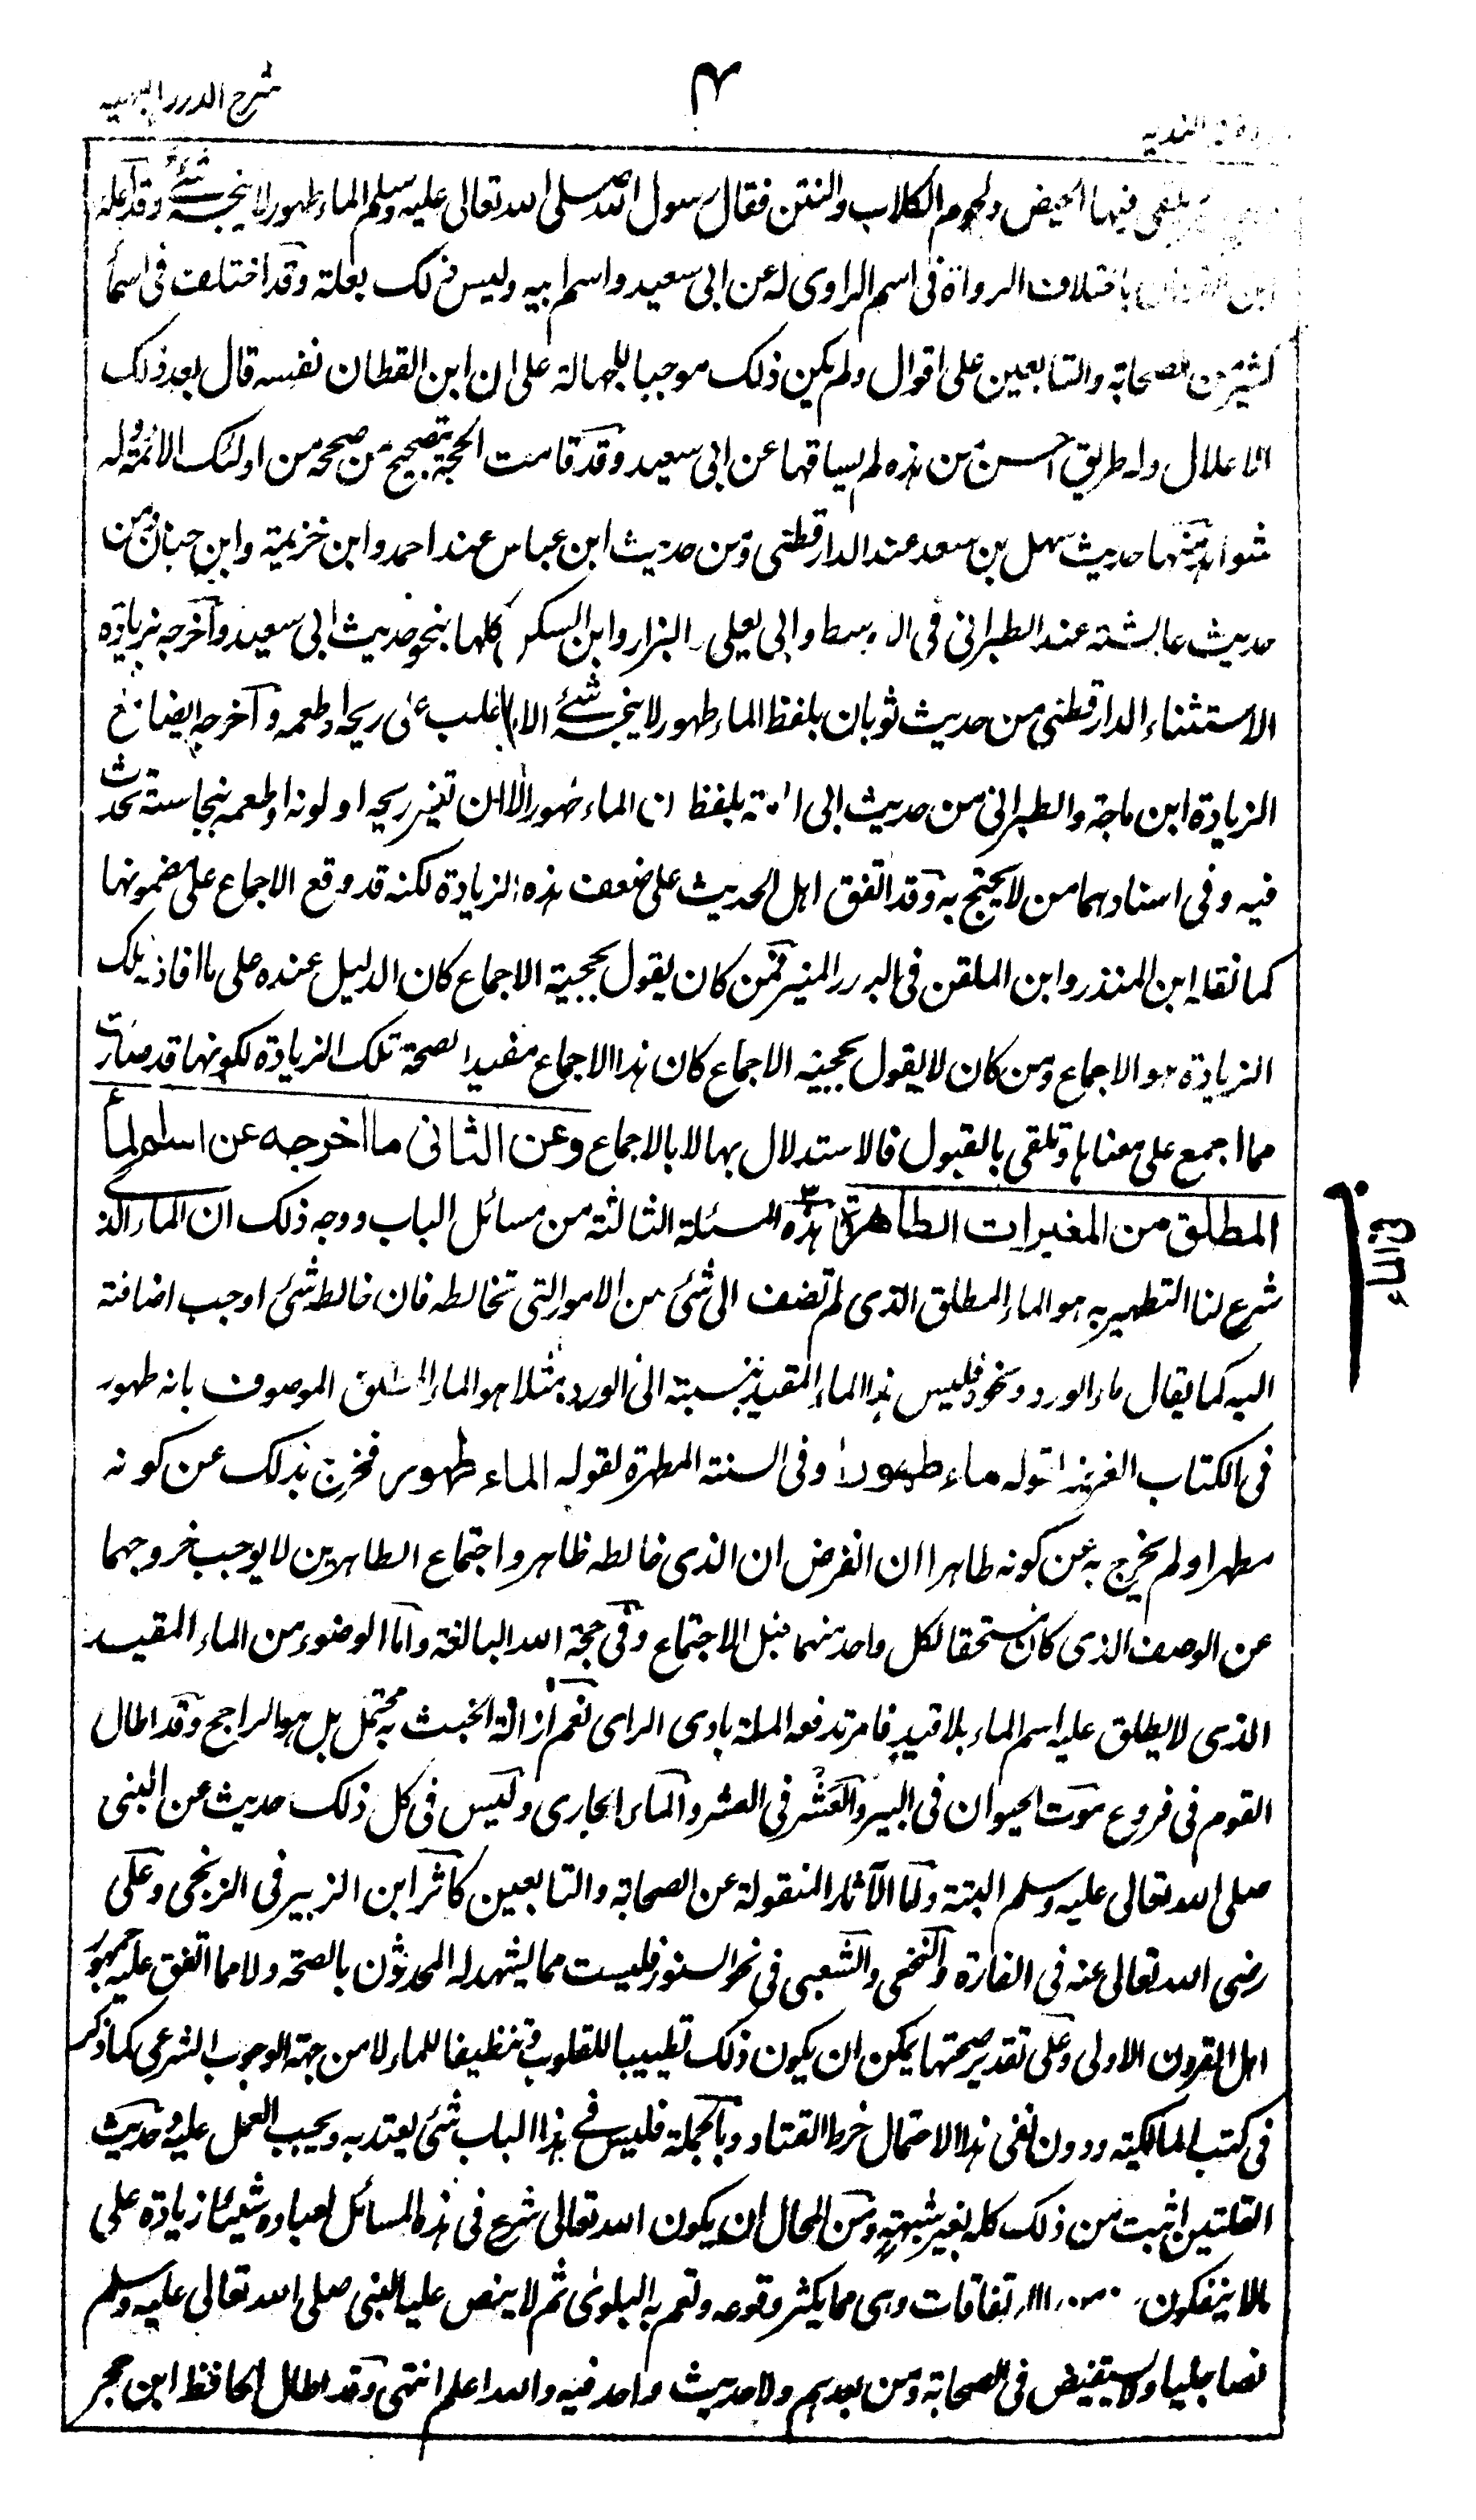 شرح الدرر البهية
٤
الندية
يلقى فيها الحيض ولحوم الكلاب والنتن فقال رسول الله صلى الله تعالى عليه وسلم الماء طهور لا ينجسه شئ وقد اعله
ابن القطان باختلاف الرواة فى اسم الراوى له عن ابى سعيد واسم ابيه وليس ذلك بعلة وقد اختلف فى اسماء
كثير من الصحابة والتابعين على اقوال ولم يكن ذلك موجبا للجهالة على ان ابن القطان نفسه قال بعد ذلك
الاعلال وله طريق احسن من هذه ثم ساقها عن ابى سعيد وقد قامت الحجة بتصحيح من صححه من اولئك الائمة وله
شواهد منها حديث سهل بن سعد عند الدارقطنى ومن حديث ابن عباس عند احمد وابن خزيمة وابن حبان ومن
حديث عائشة عند الطبرانى فى الاوسط وابى يعلى والبزار وابن السكن كلها بنحو حديث ابى سعيد واخرجه بزيادة
الاستثناء الدارقطنى من حديث ثوبان بلفظ الماء طهور لا ينجسه شئ الا ما غلب على ريحه او طعمه واخرجه ايضا مع
الزيادة ابن ماجة والطبرانى من حديث ابى امامة بلفظ ان الماء طهور الا ان تغير ريحه او لونه او طعمه بنجاسة تحدث
فيه وفى اسنادهما من لا يحتج به وقد اتفق اهل الحديث على ضعف هذه الزيادة لكنه قد وقع الاجماع على مضمونها
كما نقله ابن المنذر وابن الملقن فى البدر المنير فمن كان يقول بحجية الاجماع كان الدليل عنده على ما افادته تلك
الزيادة هو الاجماع ومن كان لا يقول بحجية الاجماع كان هذا الاجماع مفيدا لصحة تلك الزيادة لكونها قد صارت
مما اجمع على معناها وتلقى بالقبول فالاستدلال بها لا بالاجماع وعن الثانى ما اخرجه عن اسم الماء
المطلق من المغيرات الطاهرة هذه المسئلة الثالثة من مسائل الباب ووجه ذلك ان الماء الذى
شرع لنا التطهير به هو الماء المطلق الذى لم تضف الى شئ من الامور التى تخالطه فان خالطه شئ اوجب اضافته
اليه كما يقال ماء الورد ونحوه فليس هذا الماء المقيد بنسبته الى الورد مثلا هو الماء المطلق الموصوف بانه طهور
فى الكتاب العزيز بقوله ماء طهورا وفى السنة المطهرة لقوله الماء طهور فخرج بذلك عن كونه
مطهرا ولم يخرج به عن كونه طاهرا ان الفرض ان الذى خالطه طاهر واجتماع الطاهرين لا يوجب خروجهما
عن الوصف الذى كان مستحقا لكل واحد منهما قبل الاجتماع وفى حجة الله البالغة واما الوضوء من الماء المقيد
الذى لا يطلق عليه اسم الماء بلا قيد فامر تدفعه الملة بادى الراى نعم ازالة الخبث به محتمل بل هو الراجح وقد اطال
القوم فى فروع موت الحيوان فى البير والعشر فى العشر والماء الجارى وليس فى كل ذلك حديث عن النبى
صلى الله تعالى عليه وسلم البتة واما الآثار المنقولة عن الصحابة والتابعين كاثر ابن الزبير فى الزنجى وعلى
رضى الله تعالى عنه فى الفارة والنخعى والشعبى فى نحو السنور فليست مما يشهد له المحدثون بالصحة ولا مما اتفق عليه جمهور
اهل القرون الاولى وعلى تقدير صحتها يمكن ان يكون ذلك تطييبا للقلوب وتنظيفا للماء لا من جهة الوجوب الشرعى كما ذكر
فى كتب المالكية ودون نفى هذا الاحتمال خرط القتاد وبالجملة فليس فى هذا الباب شئ يعتد به ويجب العمل عليه وحديث
القلتين اثبت من ذلك كله بغير شبهة ومن المحال ان يكون الله تعالى شرع فى هذه المسائل لعباده شيئا زيادة على
مالا ينفكون الارتفاقات وهى مما يكثر وقوعه وتعم به البلوى ثم لا ينص عليه النبى صلى الله تعالى عليه وسلم
نصا جليا ولا يستفيض فى الصحابة ومن بعدهم ولا حديث واحد فيه والله اعلم انتهى وقد اطال الحافظ ابن حجر